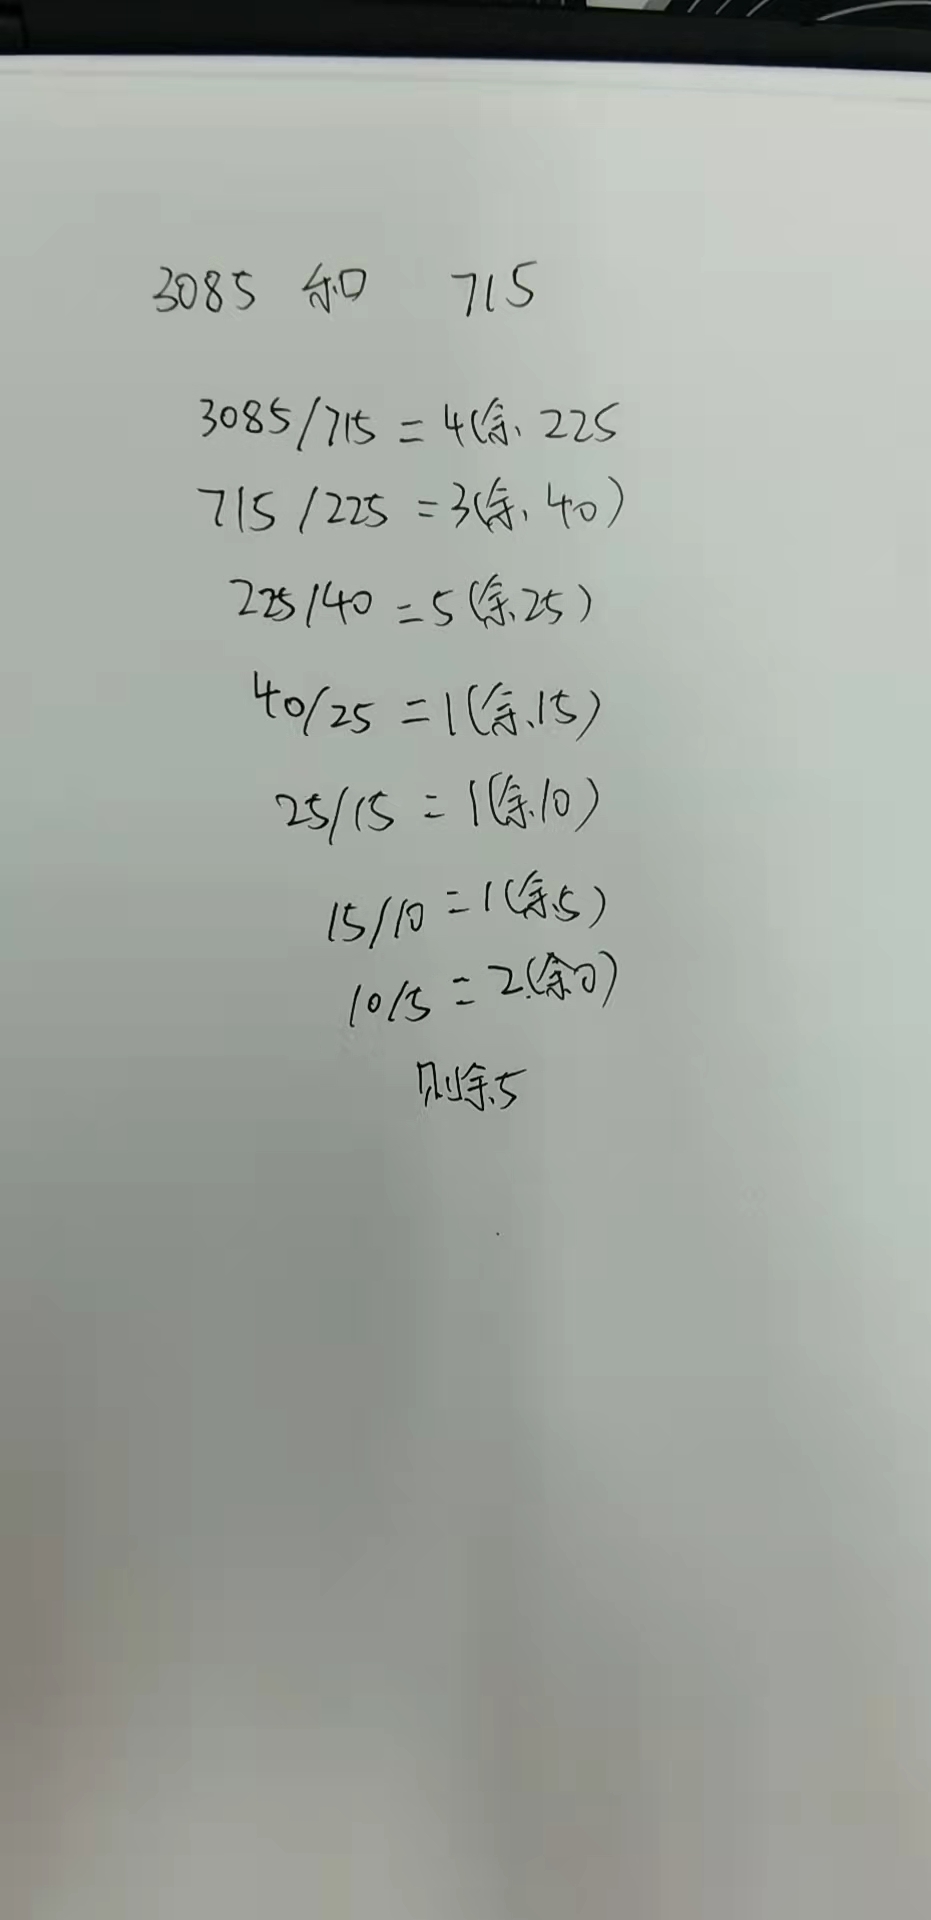 3085 和 715
3085/715 = 4(余 225
715/225 = 3(余 40)
225/40 = 5(余25)
40/25 = 1(余15)
25/15 = 1(余10)
15/10 = 1(余5)
10/5 = 2(余0)
则余5